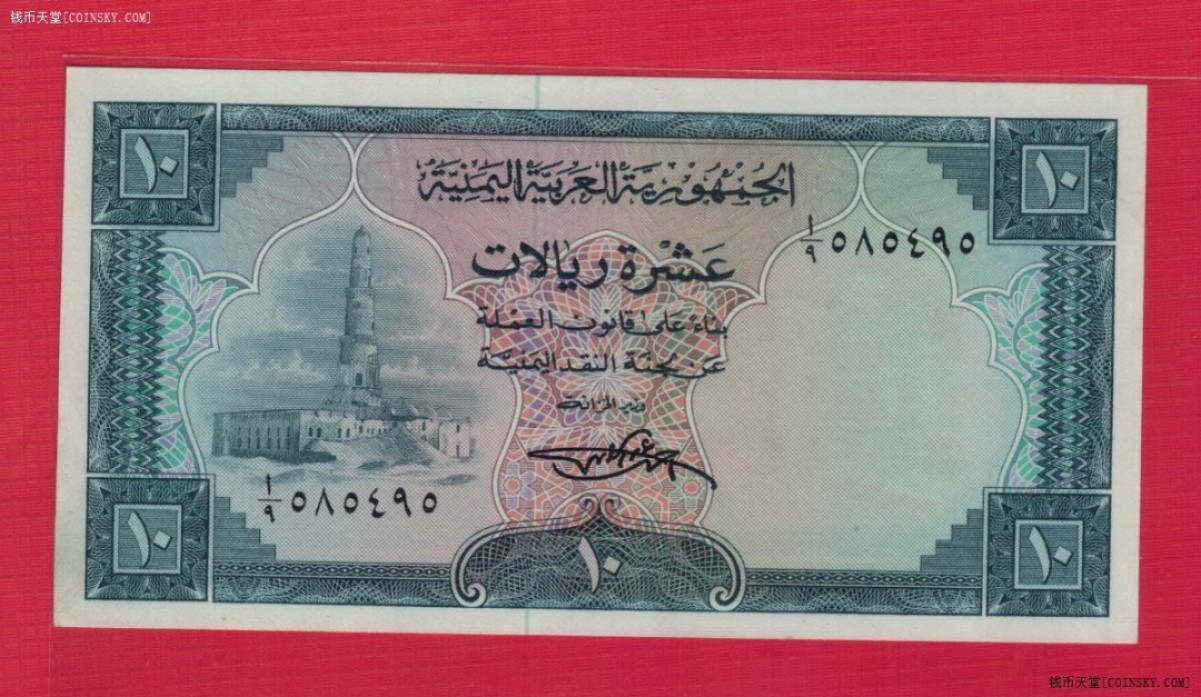 钱币天堂[COINSKY.COM]
١٠ ١٠
الجمهورية العربية اليمنية
١/٩ ٥٨٥٤٩٥
عشرة ريالات
بناء على قانون العملة
عن لجنة النقد اليمنية
وزير الخزانة
١/٩ ٥٨٥٤٩٥
١٠ ١٠ ١٠
钱币天堂[COINSKY.COM]